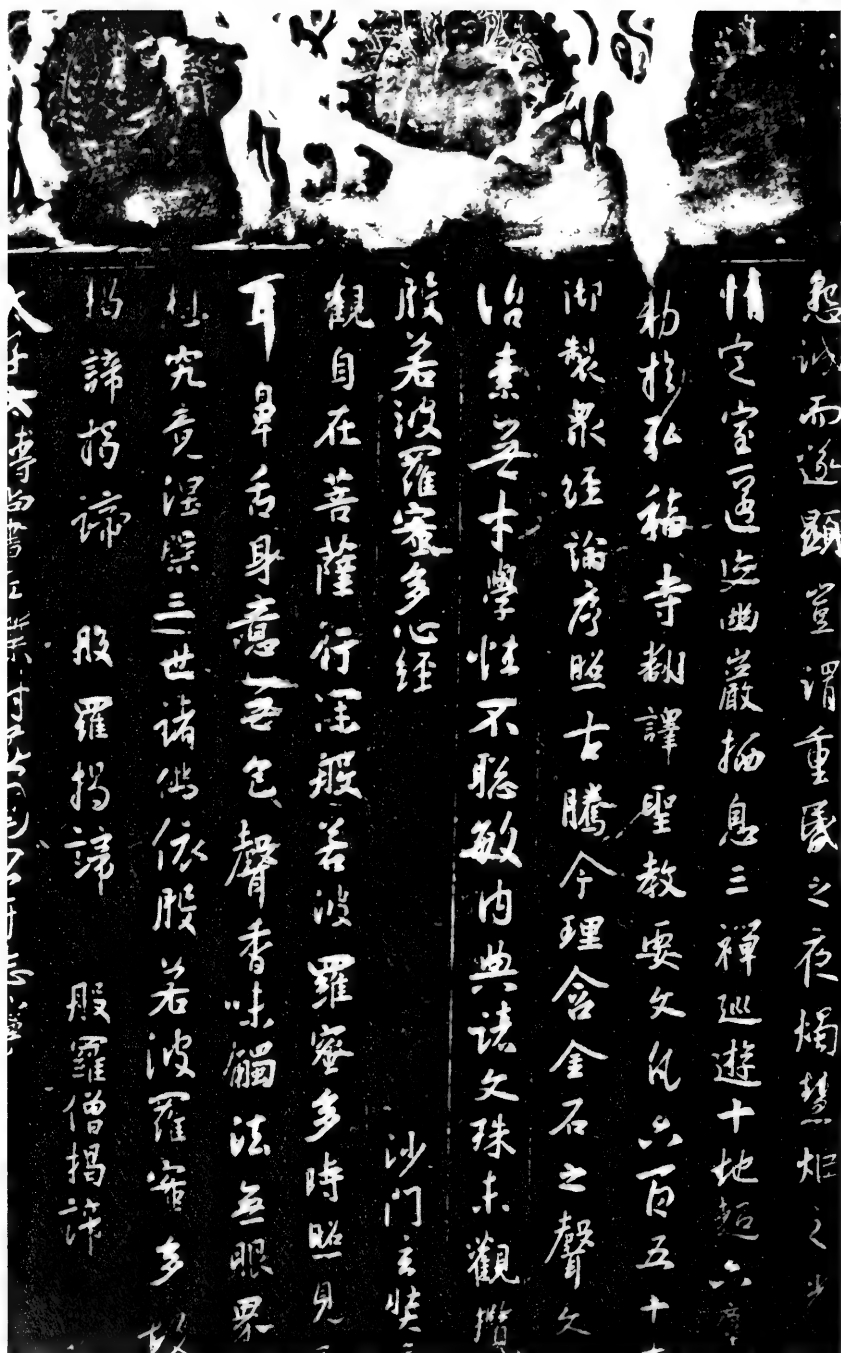 懇誠而遂顯豈謂重昬之夜燭慧炬之光
情定室匿迹幽巖栖息三禪巡遊十地超六塵
勑於弘福寺翻譯聖教要文凡六百五十
御製衆經論序照古騰今理含金石之聲文
治素無才學性不聰敏内典諸文殊未觀攬
般若波羅蜜多心經 沙門玄奘
觀自在菩薩行深般若波羅蜜多時照見
耳鼻舌身意無色聲香味觸法無眼界
想究竟涅槃三世諸佛依般若波羅蜜多故
揭諦揭諦 般羅揭諦 般羅僧揭諦
太子太傅尚書